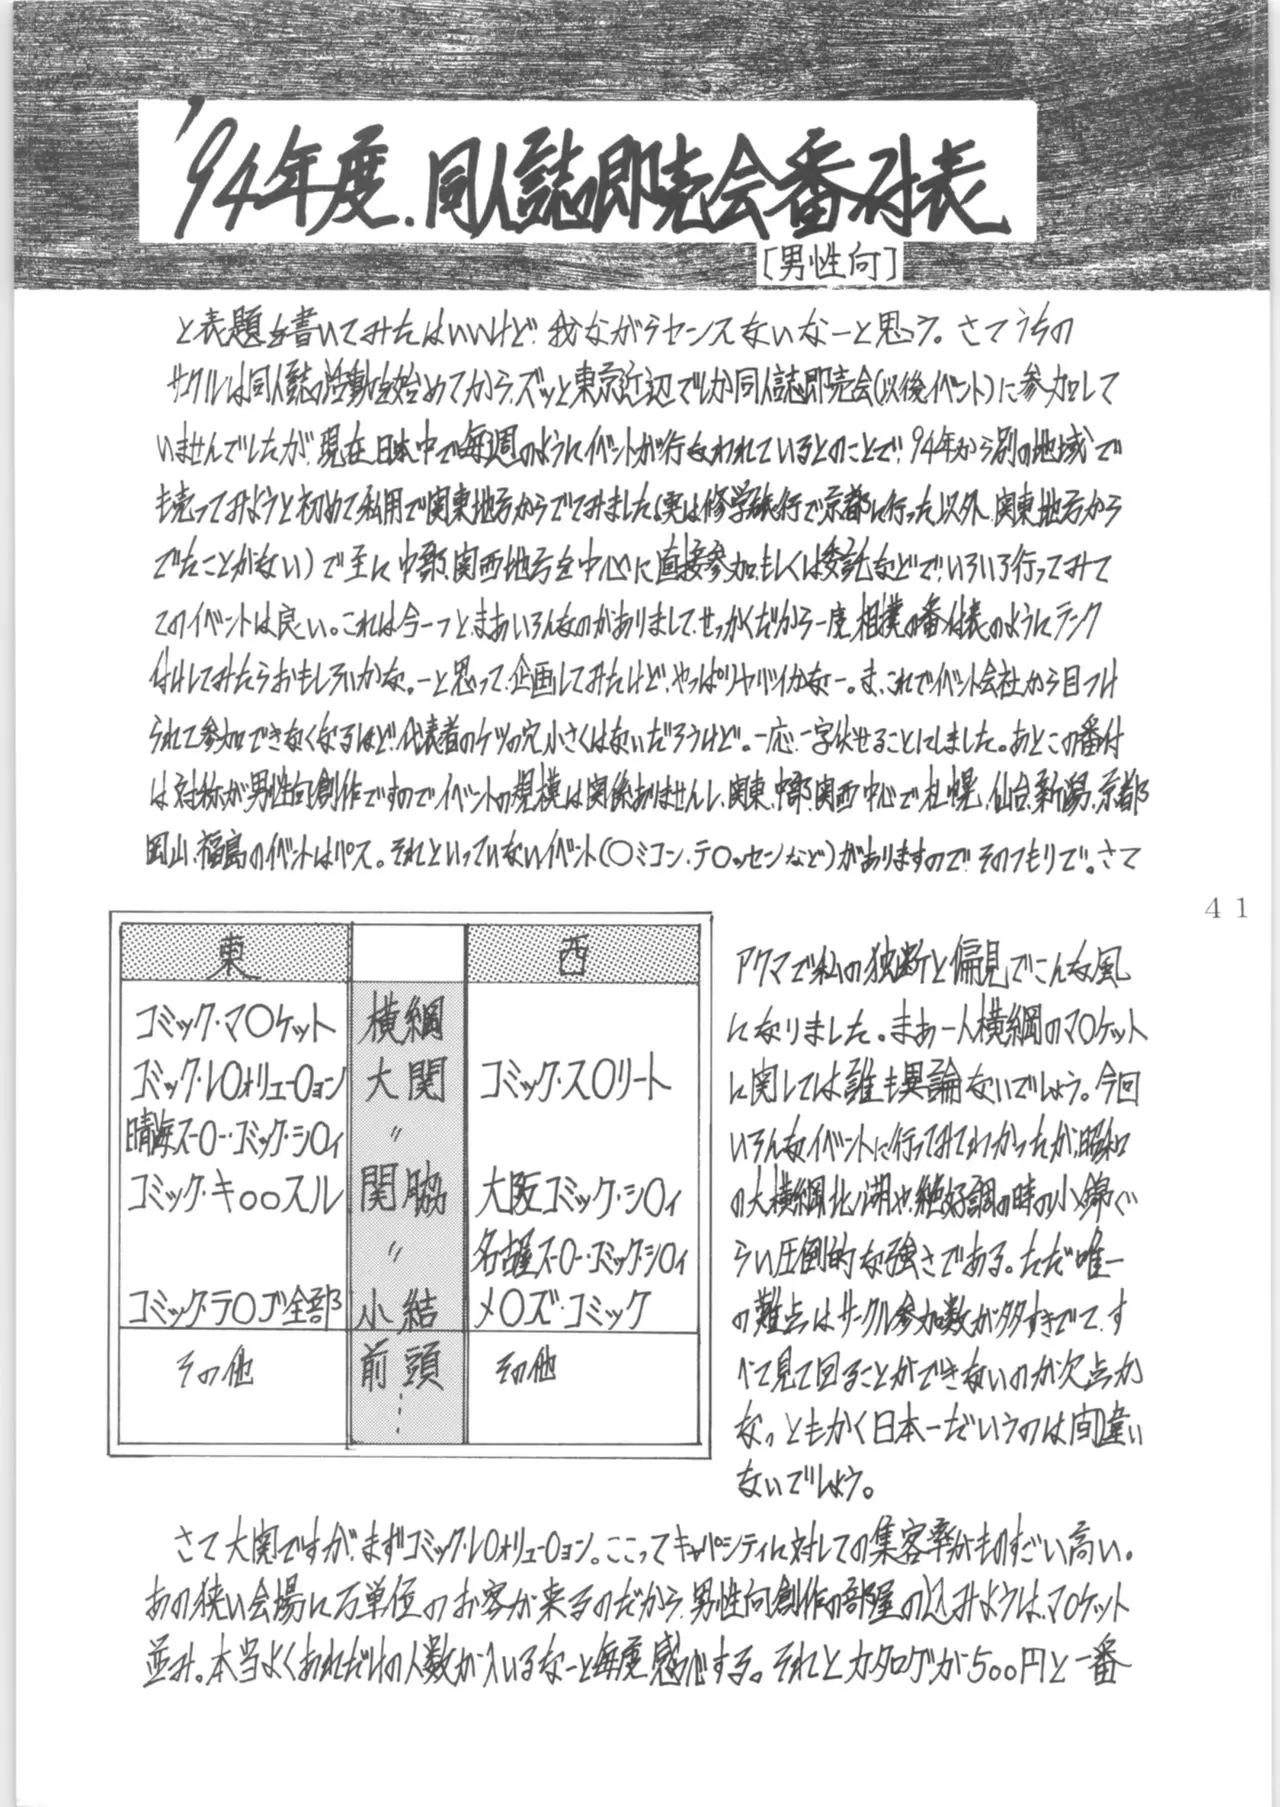 '94年度.同人誌即売会番付表
[男性向]
と表題を書いてみたはいいけど、我ながらセンスないなーと思う。さてうちの
サークルは同人誌の活動を始めてから、ズッと東京近辺でしか同人誌即売会(以後イベント)に参加して
いませんでしたが、現在日本中で毎週のようにイベントが行なわれているとのことで、94年から別の地域で
も売ってみようと初めて私用で関東地方からでてみました(実は修学旅行で京都に行った以外、関東地方から
でたことがない)で主に中部、関西地方を中心に直接参加、もしくは委託などで、いろいろ行ってみて
このイベントは良い。これは今一つと、まあいろんなのがありまして、せっかくだから一度、相撲の番付表のようにランク
付けしてみたらおもしろいかな。ーと思って、企画してみたけど、やっぱりヤバイかなー。ま、これでイベント会社から目つけ
られて参加できなくなるほど、代表者のケツの穴小さくはないだろうけど。一応、一字伏せることにしました。あとこの番付
は対称が男性向創作ですのでイベントの規模は関係ありませんし、関東、中部、関西中心で札幌、仙台、新潟、京都
岡山、福島のイベントはパス。それといっていないイベント(○ミコン、テ○ッセンなど)がありますので、そのつもりで。さて
41
東 西
コミック・マ○ケット 横綱
コミック・レ○ォリュー○ョン 大関 コミック・ス○リート
晴海スー○ー・コミック・シ○ィ 〃
コミック・キ○○スル 関脇 大阪コミック・シ○ィ
〃 名古屋スー○ー・コミック・シ○ィ
コミック・テ○ブ全部 小結 メ○ズ・コミック
その他 前頭 その他
アクマで私の独断と偏見でこんな風
になりました。まあ一人横綱のマ○ケット
に関しては誰も異論ないでしょう。今回
いろんなイベントに行ってみてわかったが、昭和
の大横綱北ノ湖や、絶好調の時の小錦ぐ
らい圧倒的な強さである。ただ唯一
の難点はサークル参加数が多すぎて、す
べて見て回ることができないのが欠点か
な。ともかく日本一だいうのは間違い
ないでしょう。
さて大関ですが、まずコミック・レ○ォリュー○ョン。ここってキャパシティに対しての集客率がものすごい高い。
あの狭い会場に万単位のお客が来るのだから、男性向創作の部屋の込みようは、マ○ケット
並み。本当よくあれだけの人数が入いるなーと毎度感心する。それとカタログが500円と一番